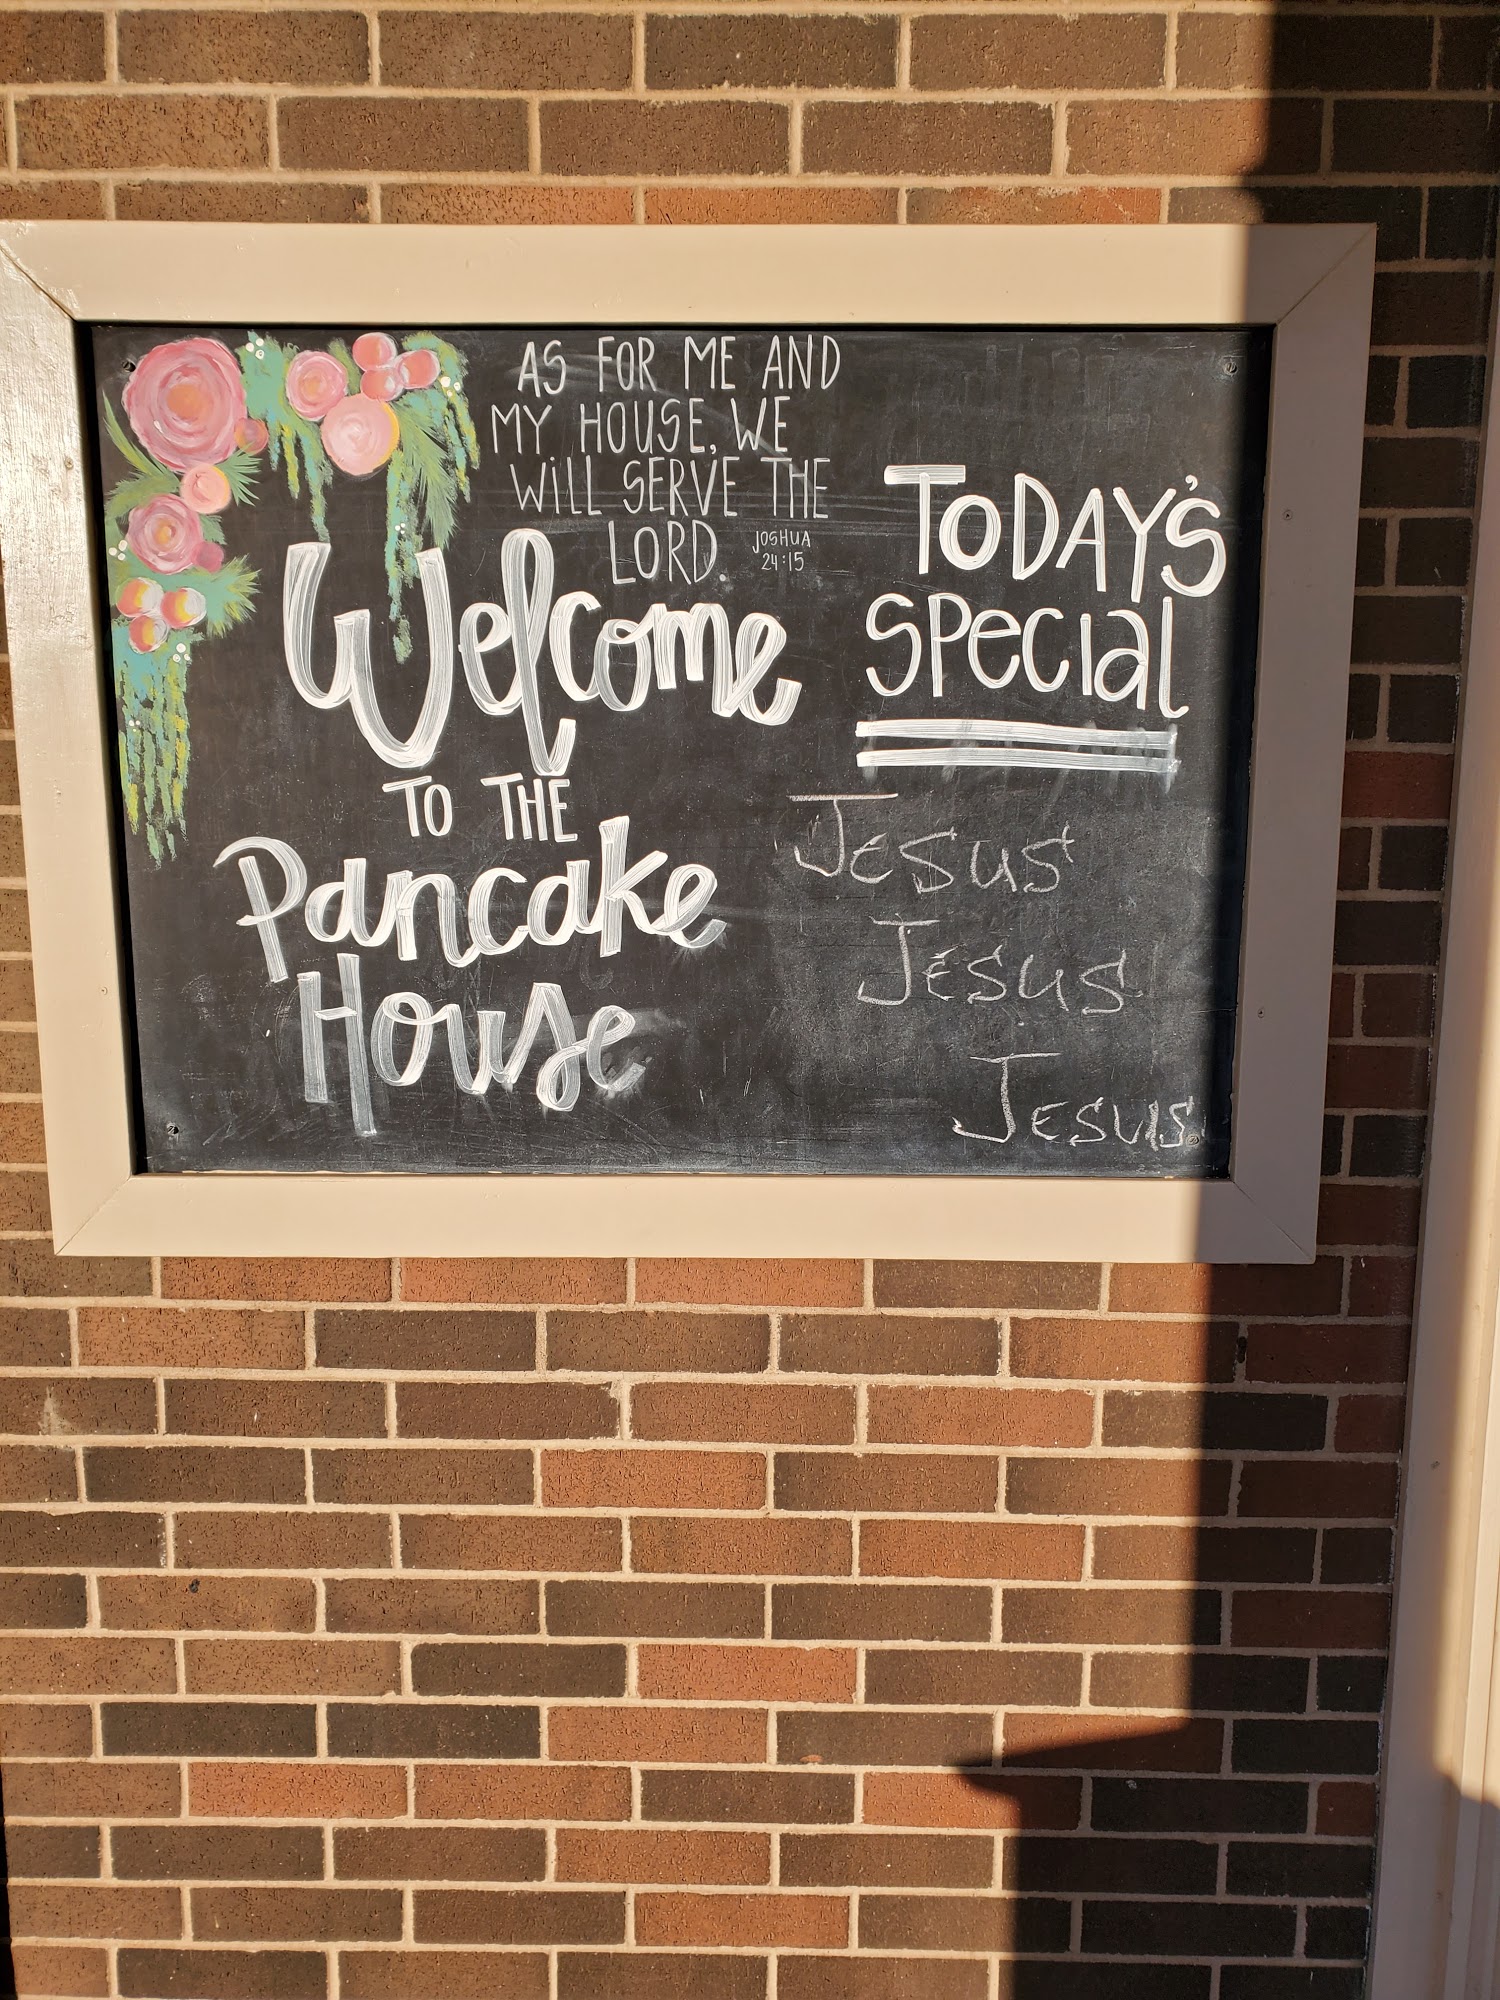 AS FOR ME AND
MY HOUSE, WE
WILL SERVE THE
LORD.
JOSHUA
24:15
Welcome
TO THE
Pancake
House
TODAY'S
SPecial
Jesus
Jesus
Jesus